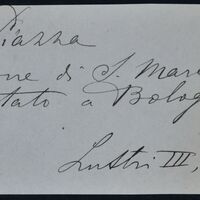 Piazza
ne di S. Mar
tato a Bolog
Lustri III,